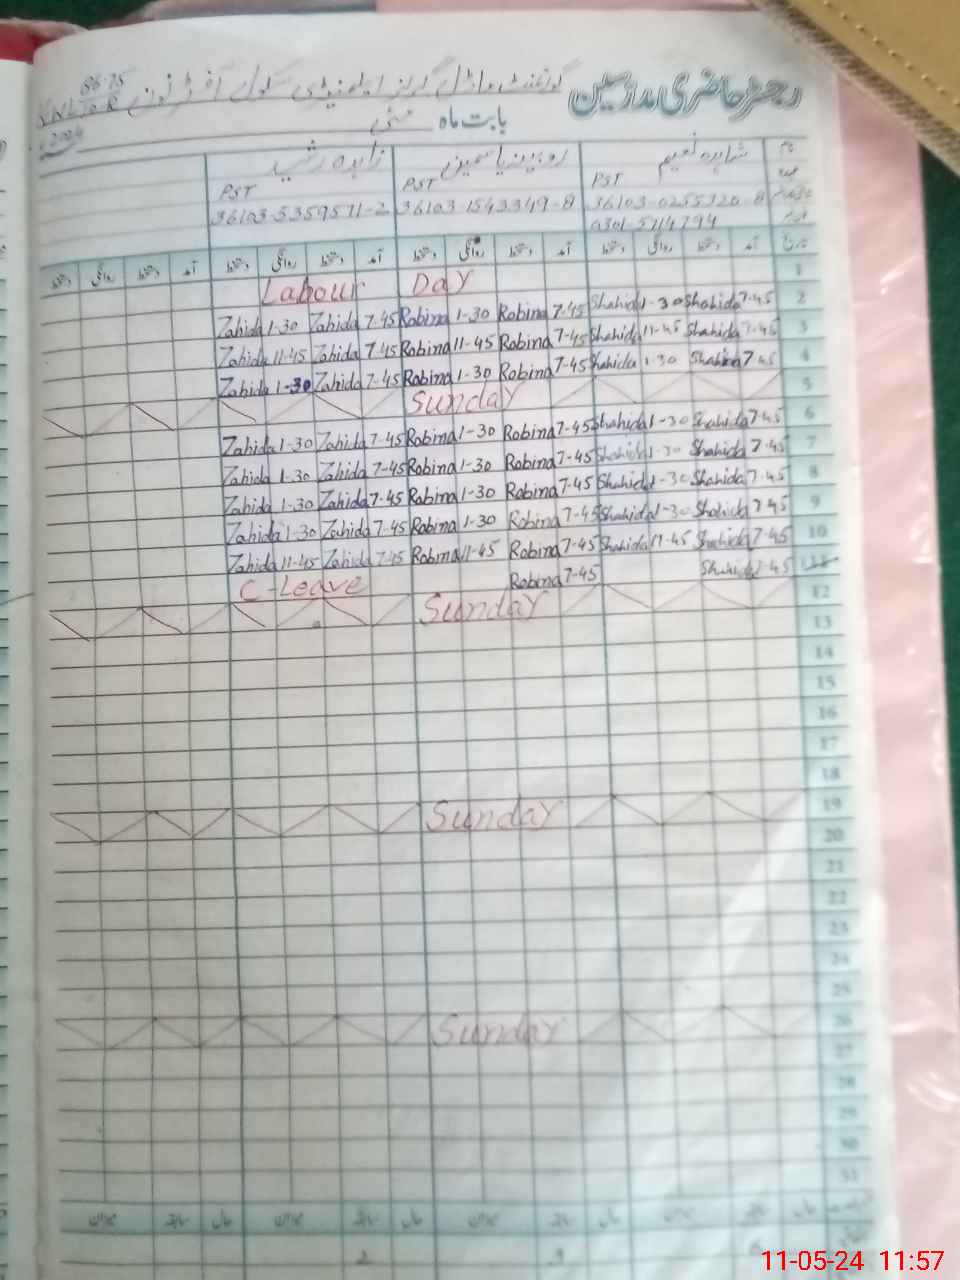 رجسٹر حاضری مدرسین گورنمنٹ ماڈل گرلز ایلیمنٹری سکول آفٹر نون
86.15
KNL TO R
بابت ماہ مئی
2024
نام شاہدہ نعیم روبینہ یاسمین زاہدہ
PST PST PST
36103-1543349-8 36103-5359571-2
0301-5714794
تاریخ آمد دستخط روانگی دستخط آمد دستخط روانگی دستخط آمد دستخط روانگی دستخط آمد دستخط روانگی دستخط
Labour Day 1
Zahida 1-30 Zahida 7-45 Robina 1-30 Robina 7-45 Shahida 1-30 Shahida 7-45 2
Zahida 11-45 Zahida 7-45 Robina 11-45 Robina 7-45 Shahida 11-45 Shahida 7-45 3
Zahida 1-30 Zahida 7-45 Robina 1-30 Robina 7-45 Shahida 1-30 Shahida 7-45 4
Sunday 5
Zahida 1-30 Zahida 7-45 Robina 1-30 Robina 7-45 Shahida 1-30 Shahida 7-45 6
Zahida 1-30 Zahida 7-45 Robina 1-30 Robina 7-45 Shahida 1-30 Shahida 7-45 7
Zahida 1-30 Zahida 7-45 Robina 1-30 Robina 7-45 Shahida 1-30 Shahida 7-45 8
Zahida 1-30 Zahida 7-45 Robina 1-30 Robina 7-45 Shahida 1-30 Shahida 7-45 9
Zahida 11-45 Zahida 7-45 Robina 11-45 Robina 7-45 Shahida 11-45 Shahida 7-45 10
C-Leave Robina 7-45 Shahida 7-45 11
Sunday 12
13
14
15
16
17
18
Sunday 19
20
21
22
23
24
25
Sunday 26
27
28
29
30
31
حال سابقہ میزان حال سابقہ میزان حال سابقہ میزان حال سابقہ میزان
2 9
11-05-24 11:57